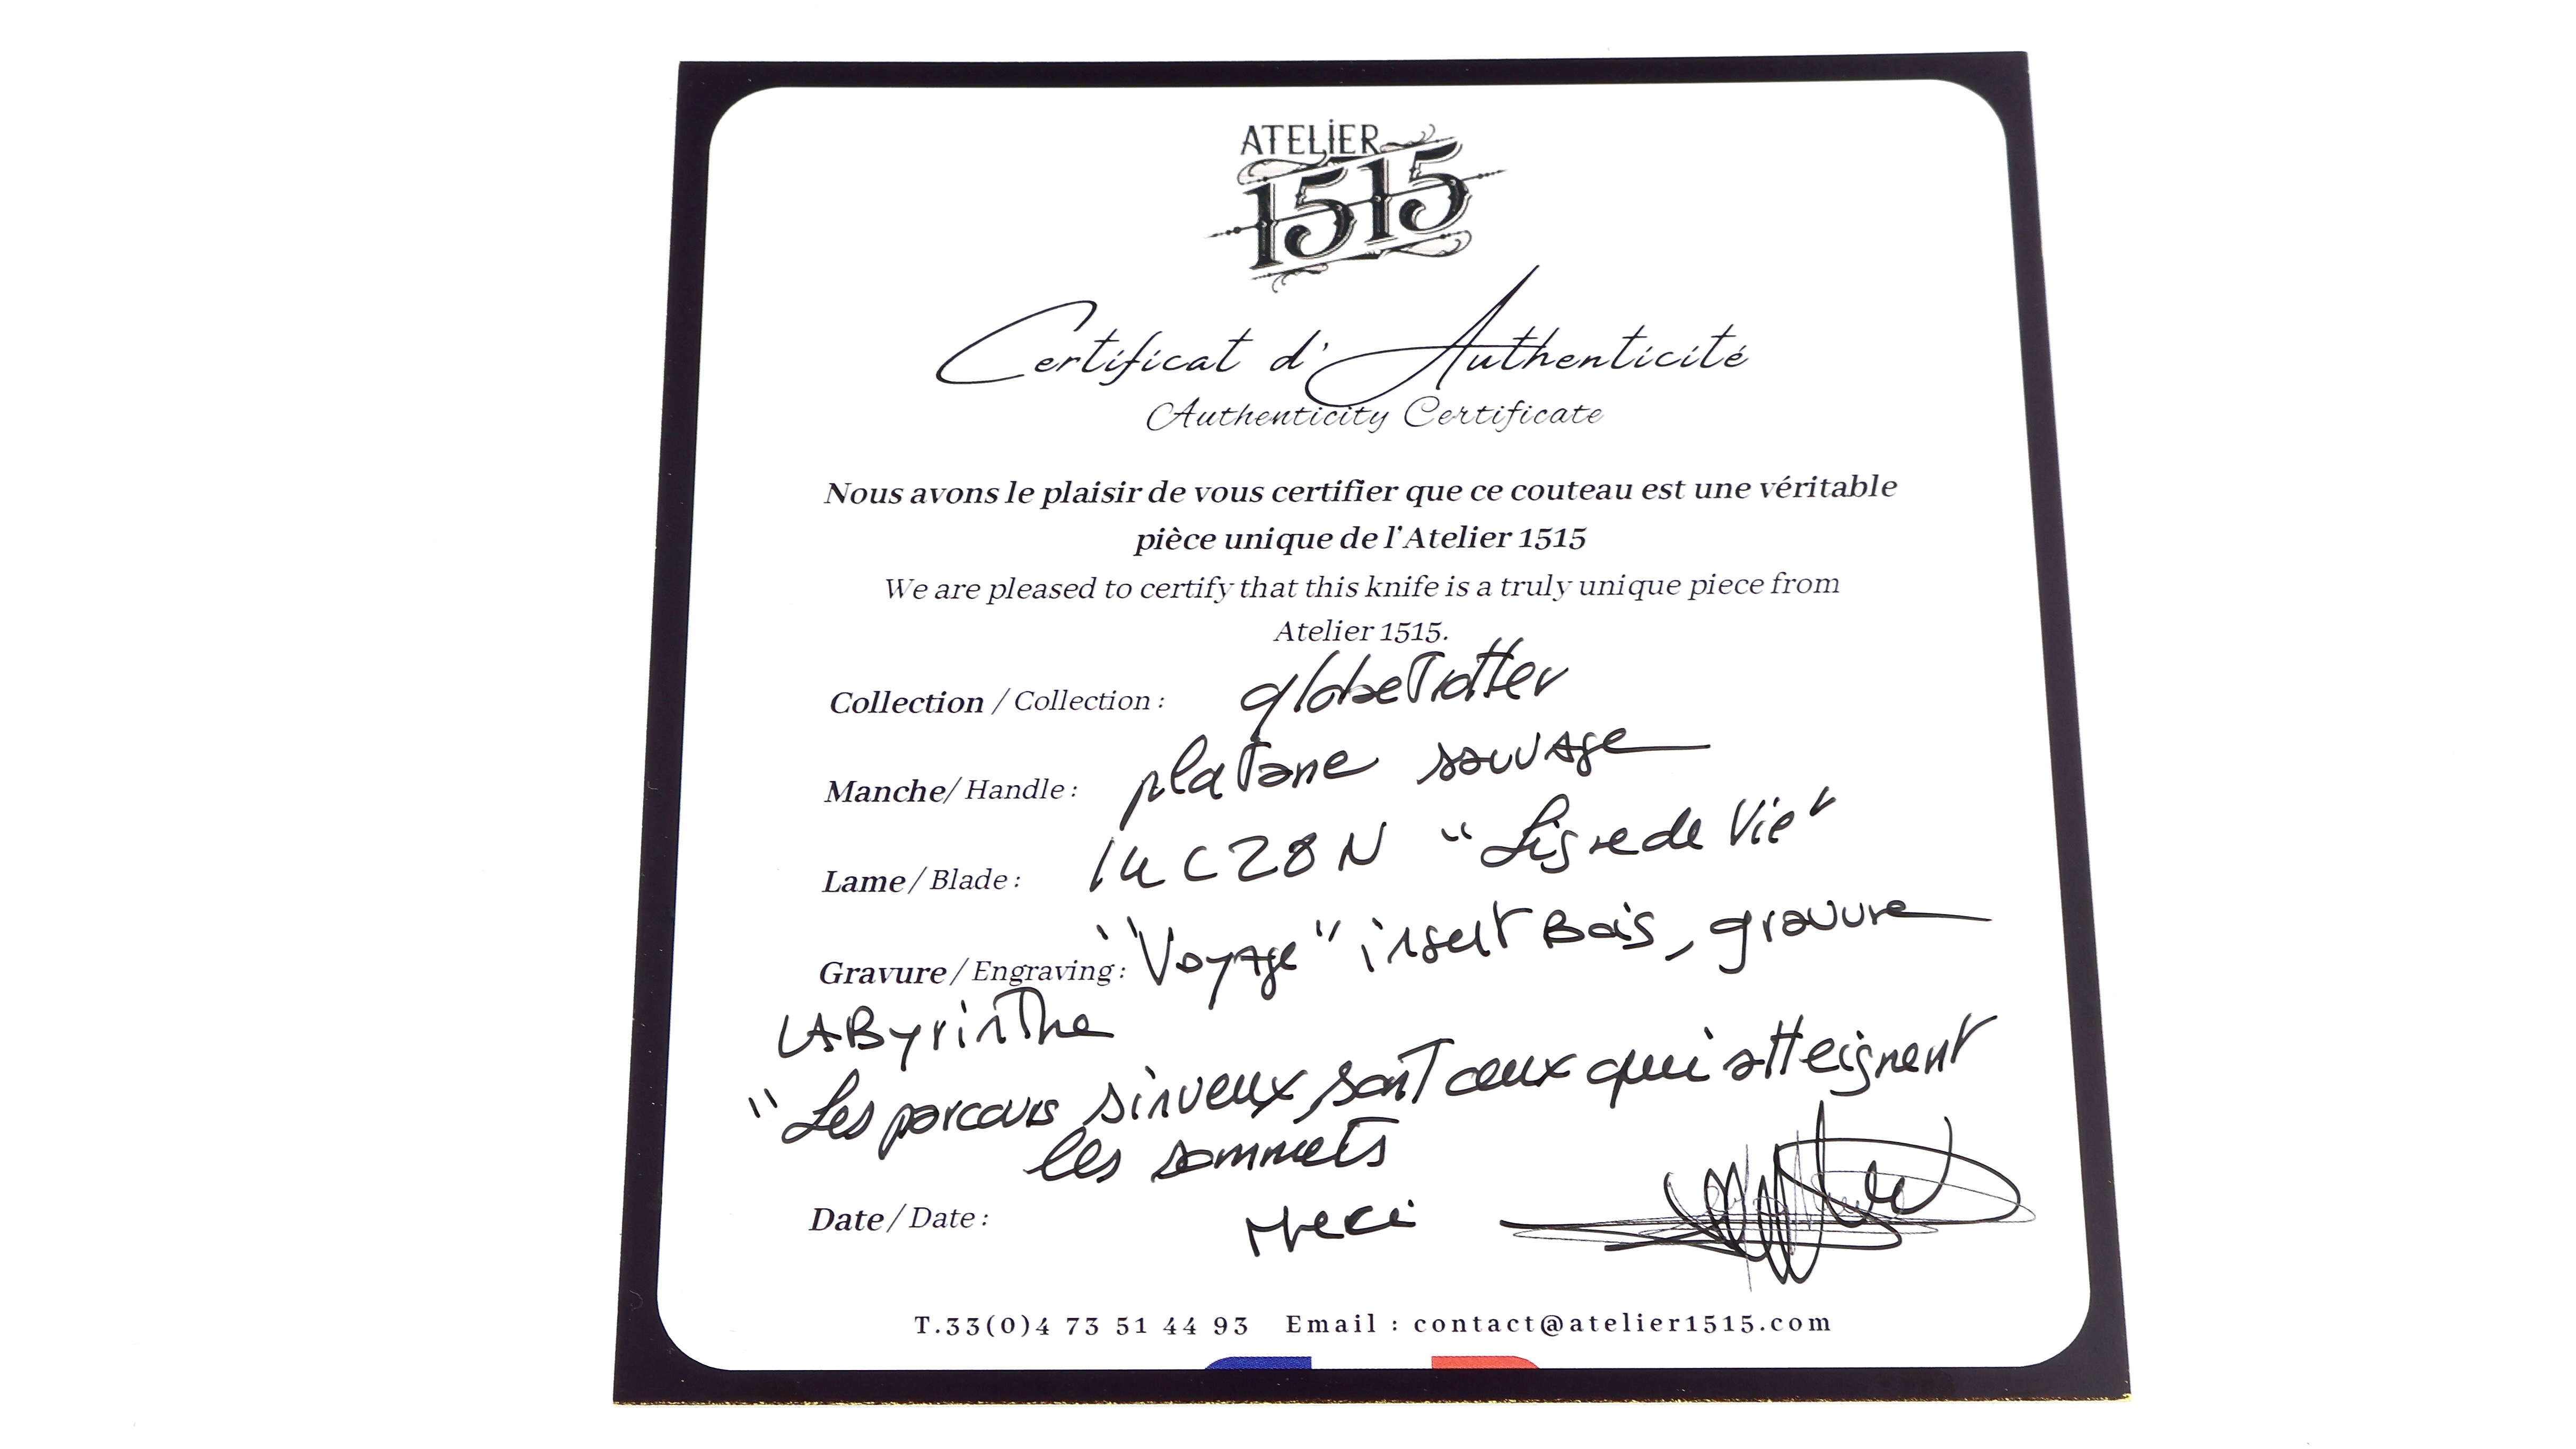 ATELIER
1515
Certificat d'Authenticité
Authenticity Certificate
Nous avons le plaisir de vous certifier que ce couteau est une véritable
pièce unique de l'Atelier 1515
We are pleased to certify that this knife is a truly unique piece from
Atelier 1515.
Collection / Collection : globeTrotter
Manche/ Handle : platane sauvage
Lame/ Blade : 14C28N "Ligne de Vie"
Gravure / Engraving : "Voyage" insert Bois, gravure
LAByrinthe
"Les parcours sinueux, sont ceux qui atteignent
les sommets
Date / Date : Merci
T.33(0)4 73 51 44 93 Email : contact@atelier1515.com